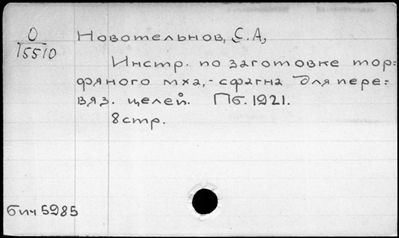 О
15510
Новотельнов, С.А,
Инстр. по заготовке тор=
фяного мха,-сфагна для пере=
вяз. целей. Пб. 1921.
8стр.
бич 5985